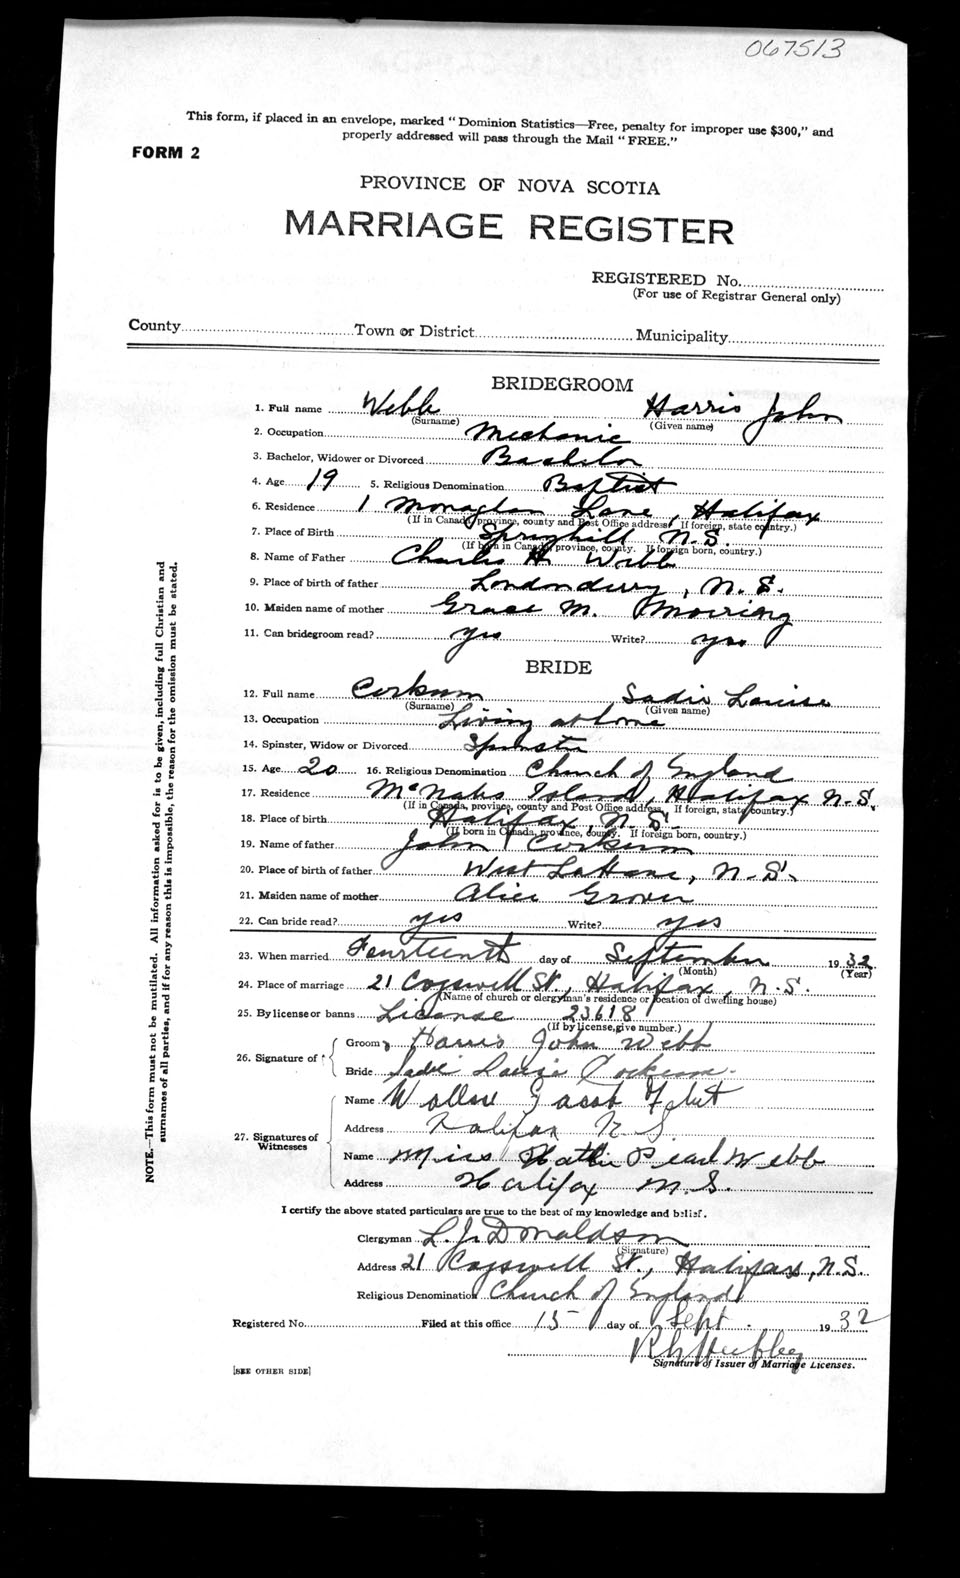 067513
This form, if placed in an envelope, marked "Dominion Statistics—Free, penalty for improper use $300," and
properly addressed will pass through the Mail "FREE."
FORM 2
PROVINCE OF NOVA SCOTIA
MARRIAGE REGISTER
REGISTERED No.
(For use of Registrar General only)
County Town or District Municipality
BRIDEGROOM
1. Full name Webb Harris John
(Surname) (Given name)
2. Occupation Mechanic
3. Bachelor, Widower or Divorced Bachelor
4. Age 19 5. Religious Denomination Baptist
6. Residence 1 Monaghan Lane, Halifax
(If in Canada, province, county and Post Office address. If foreign, state country.)
7. Place of Birth Springhill N.S.
(If born in Canada, province, county. If foreign born, country.)
8. Name of Father Charles H. Webb
9. Place of birth of father Londonderry, N.S.
10. Maiden name of mother Grace M.
11. Can bridegroom read? yes Write? yes
BRIDE
12. Full name Corkum Sadie Louise
(Surname) (Given name)
13. Occupation Living at home
14. Spinster, Widow or Divorced Spinster
15. Age 20 16. Religious Denomination Church of England
17. Residence McNabs Island, Halifax N.S.
(If in Canada, province, county and Post Office address. If foreign, state country.)
18. Place of birth Halifax, N.S.
(If born in Canada, province, county. If foreign born, country.)
19. Name of father John Corkum
20. Place of birth of father West LaHave, N.S.
21. Maiden name of mother Alice Grover
22. Can bride read? yes Write? yes
23. When married Fourteenth day of September 1932
(Month) (Year)
24. Place of marriage 21 Cogswell St., Halifax, N.S.
(Name of church or clergyman's residence or location of dwelling house)
25. By license or banns License 23618
(If by license, give number.)
26. Signature of Groom Harris John Webb
Bride Sadie Louise Corkum
27. Signatures of Witnesses
Name Jacob
Address Halifax N.S.
Name Miss Hattie Pearl Webb
Address Halifax N.S.
I certify the above stated particulars are true to the best of my knowledge and belief.
Clergyman L. J. Donaldson
(Signature)
Address 21 Cogswell St., Halifax, N.S.
Religious Denomination Church of England
Registered No. Filed at this office 15 day of Sept. 1932
Signature of Issuer of Marriage Licenses.
[SEE OTHER SIDE]
NOTE.—This form must not be mutilated. All information asked for is to be given, including full Christian and
surnames of all parties, and if for any reason this is impossible, the reason for the omission must be stated.